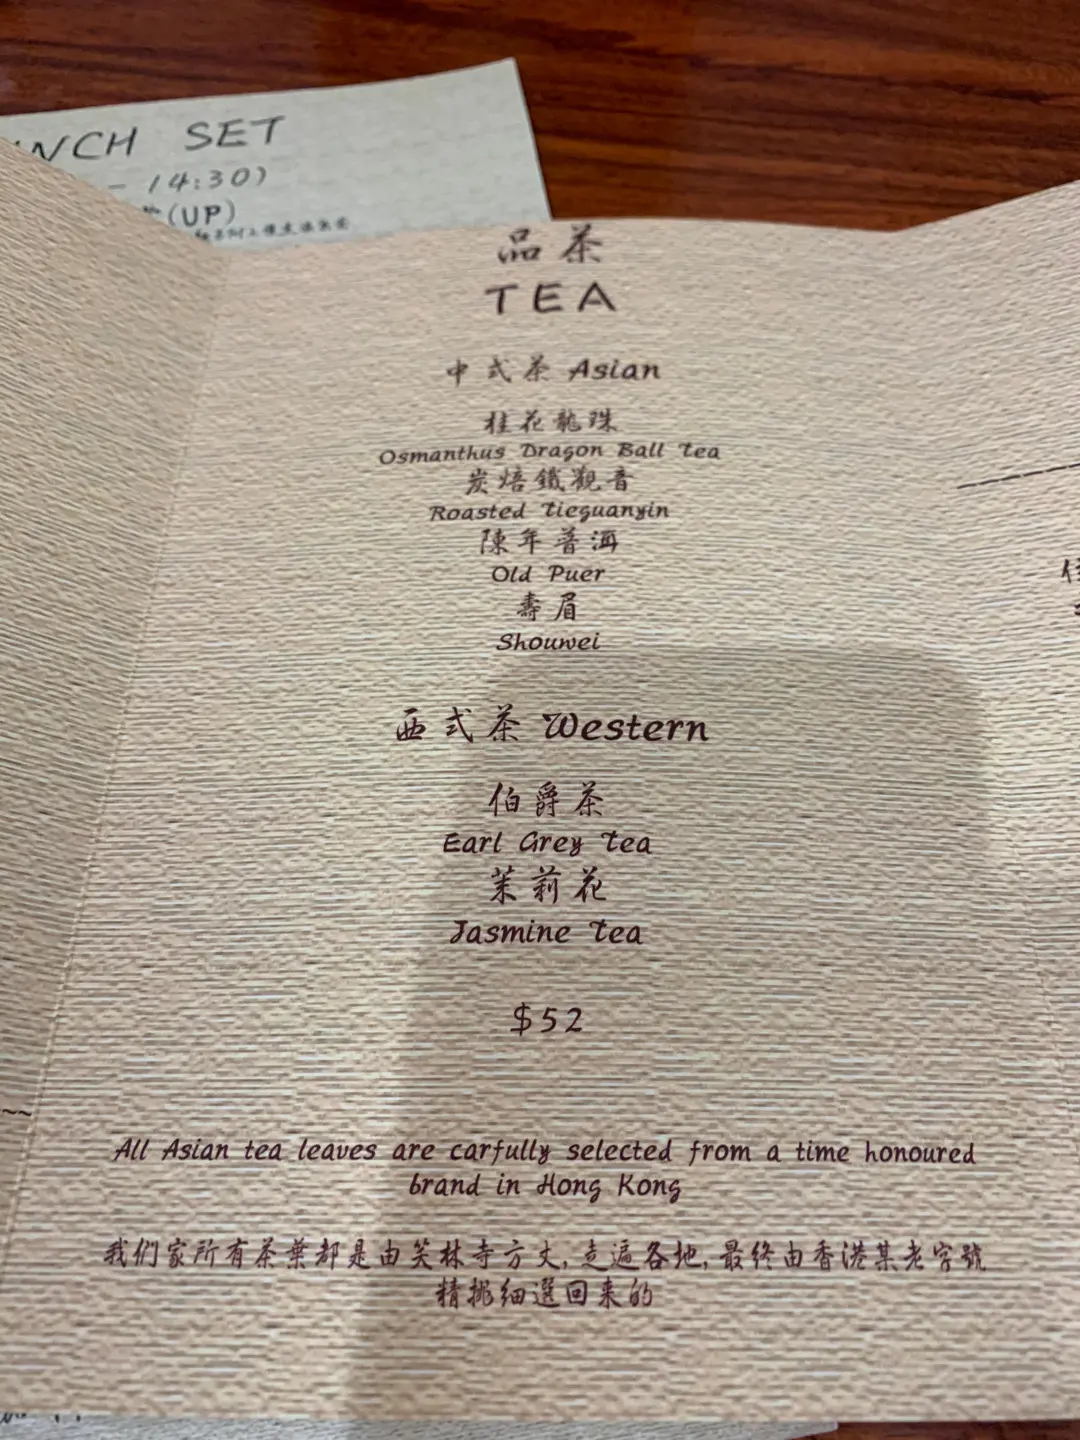 NCH SET
- 14:30)
(UP)
品茶
TEA
中式茶 Asian
桂花龍珠
Osmanthus Dragon Ball Tea
炭焙鐵觀音
Roasted Tieguanyin
陳年普洱
Old Puer
壽眉
Shoumei
西式茶 Western
伯爵茶
Earl Grey Tea
茉莉花
Jasmine Tea
$52
All Asian tea leaves are carfully selected from a time honoured
brand in Hong Kong
我们家所有茶葉都是由笑林寺方丈, 走遍各地, 最终由香港某老字號
精挑细選回来的